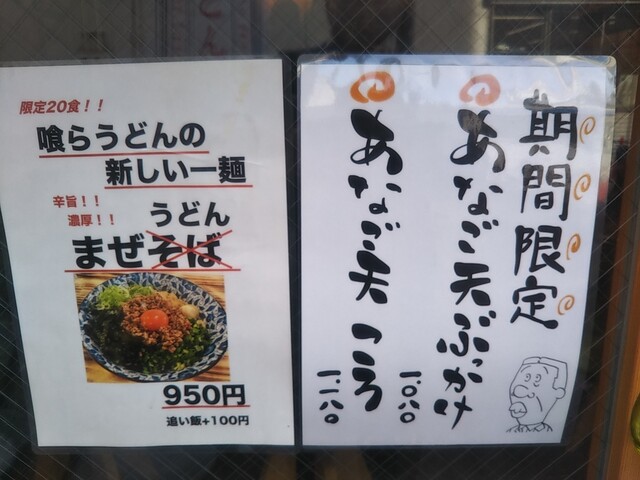 限定20食！！
喰らうどんの
新しい一麺
辛旨！！
濃厚！！
うどん
まぜそば
950円
追い飯+100円
期間限定
あなご天ぶっかけ
1.080
あなご天ころ
1.180